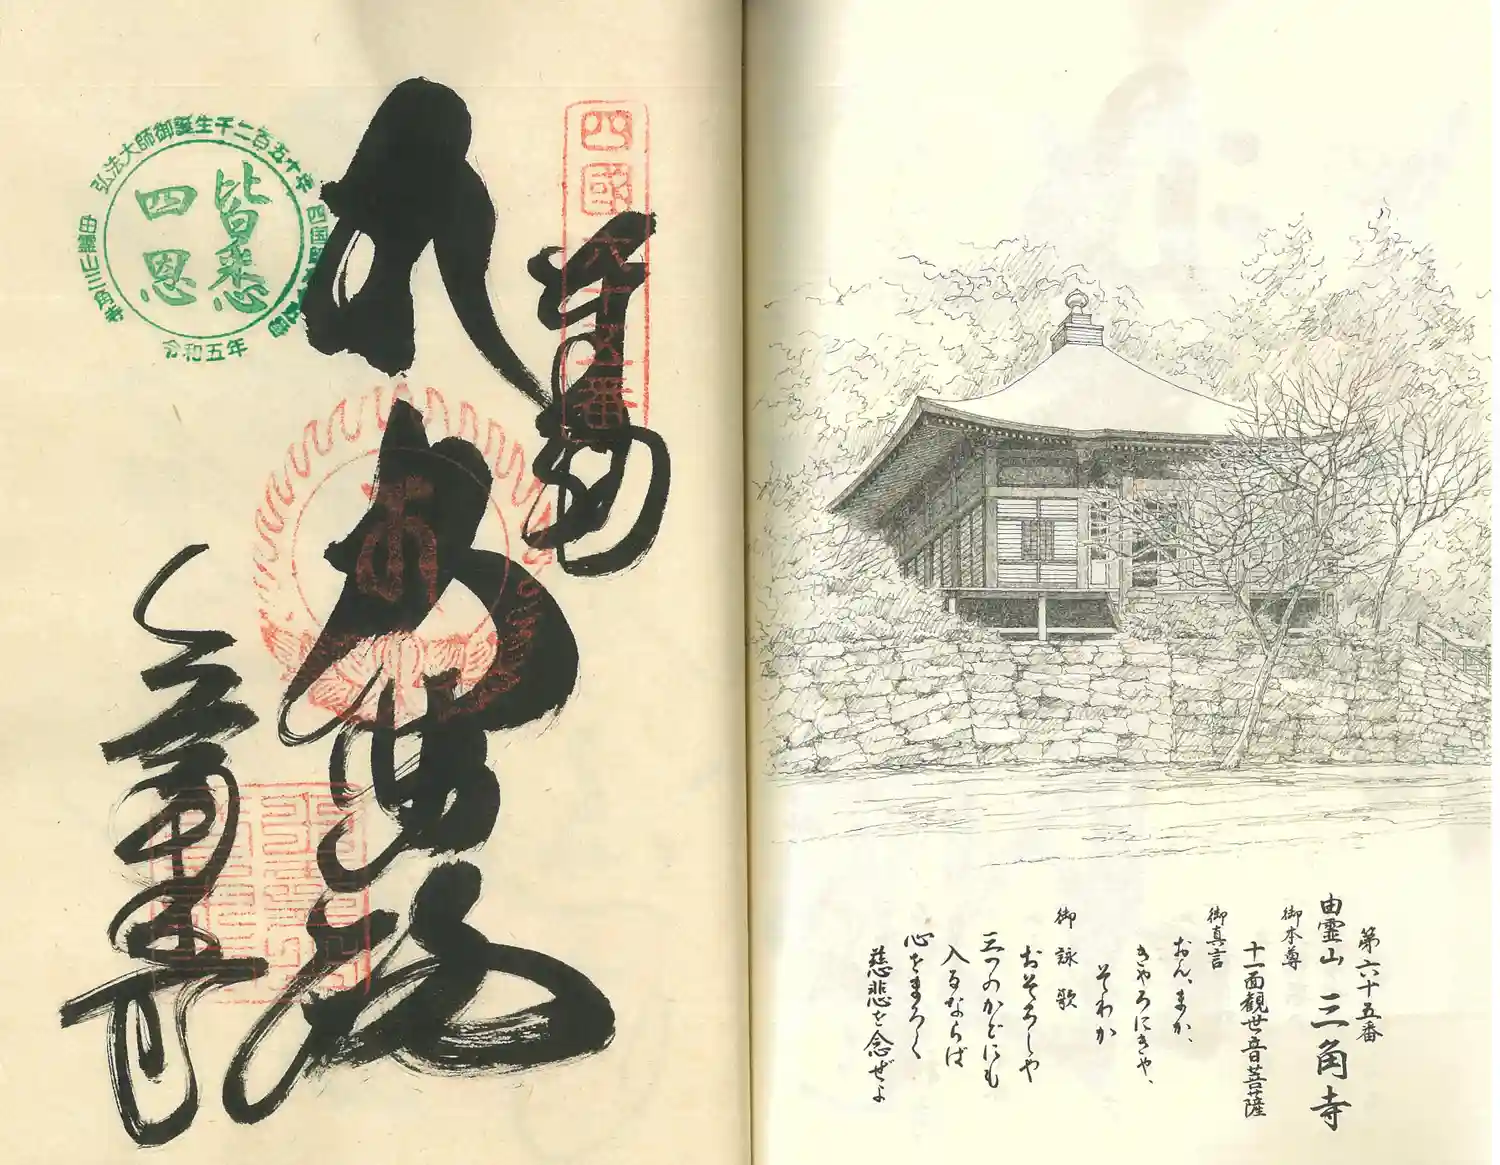 第六十五番
由霊山 三角寺
御本尊
十一面観世音菩薩
御真言
おん、まか、
きやろにきや、
そわか
御詠歌
おそろしや
三つのかどにも
入るならば
心をまろく
慈悲を念ぜよ
四國六十五番
奉納
三角寺
弘法大師御誕生千二百五十年
由霊山三角寺
令和五年
皆悉
四恩